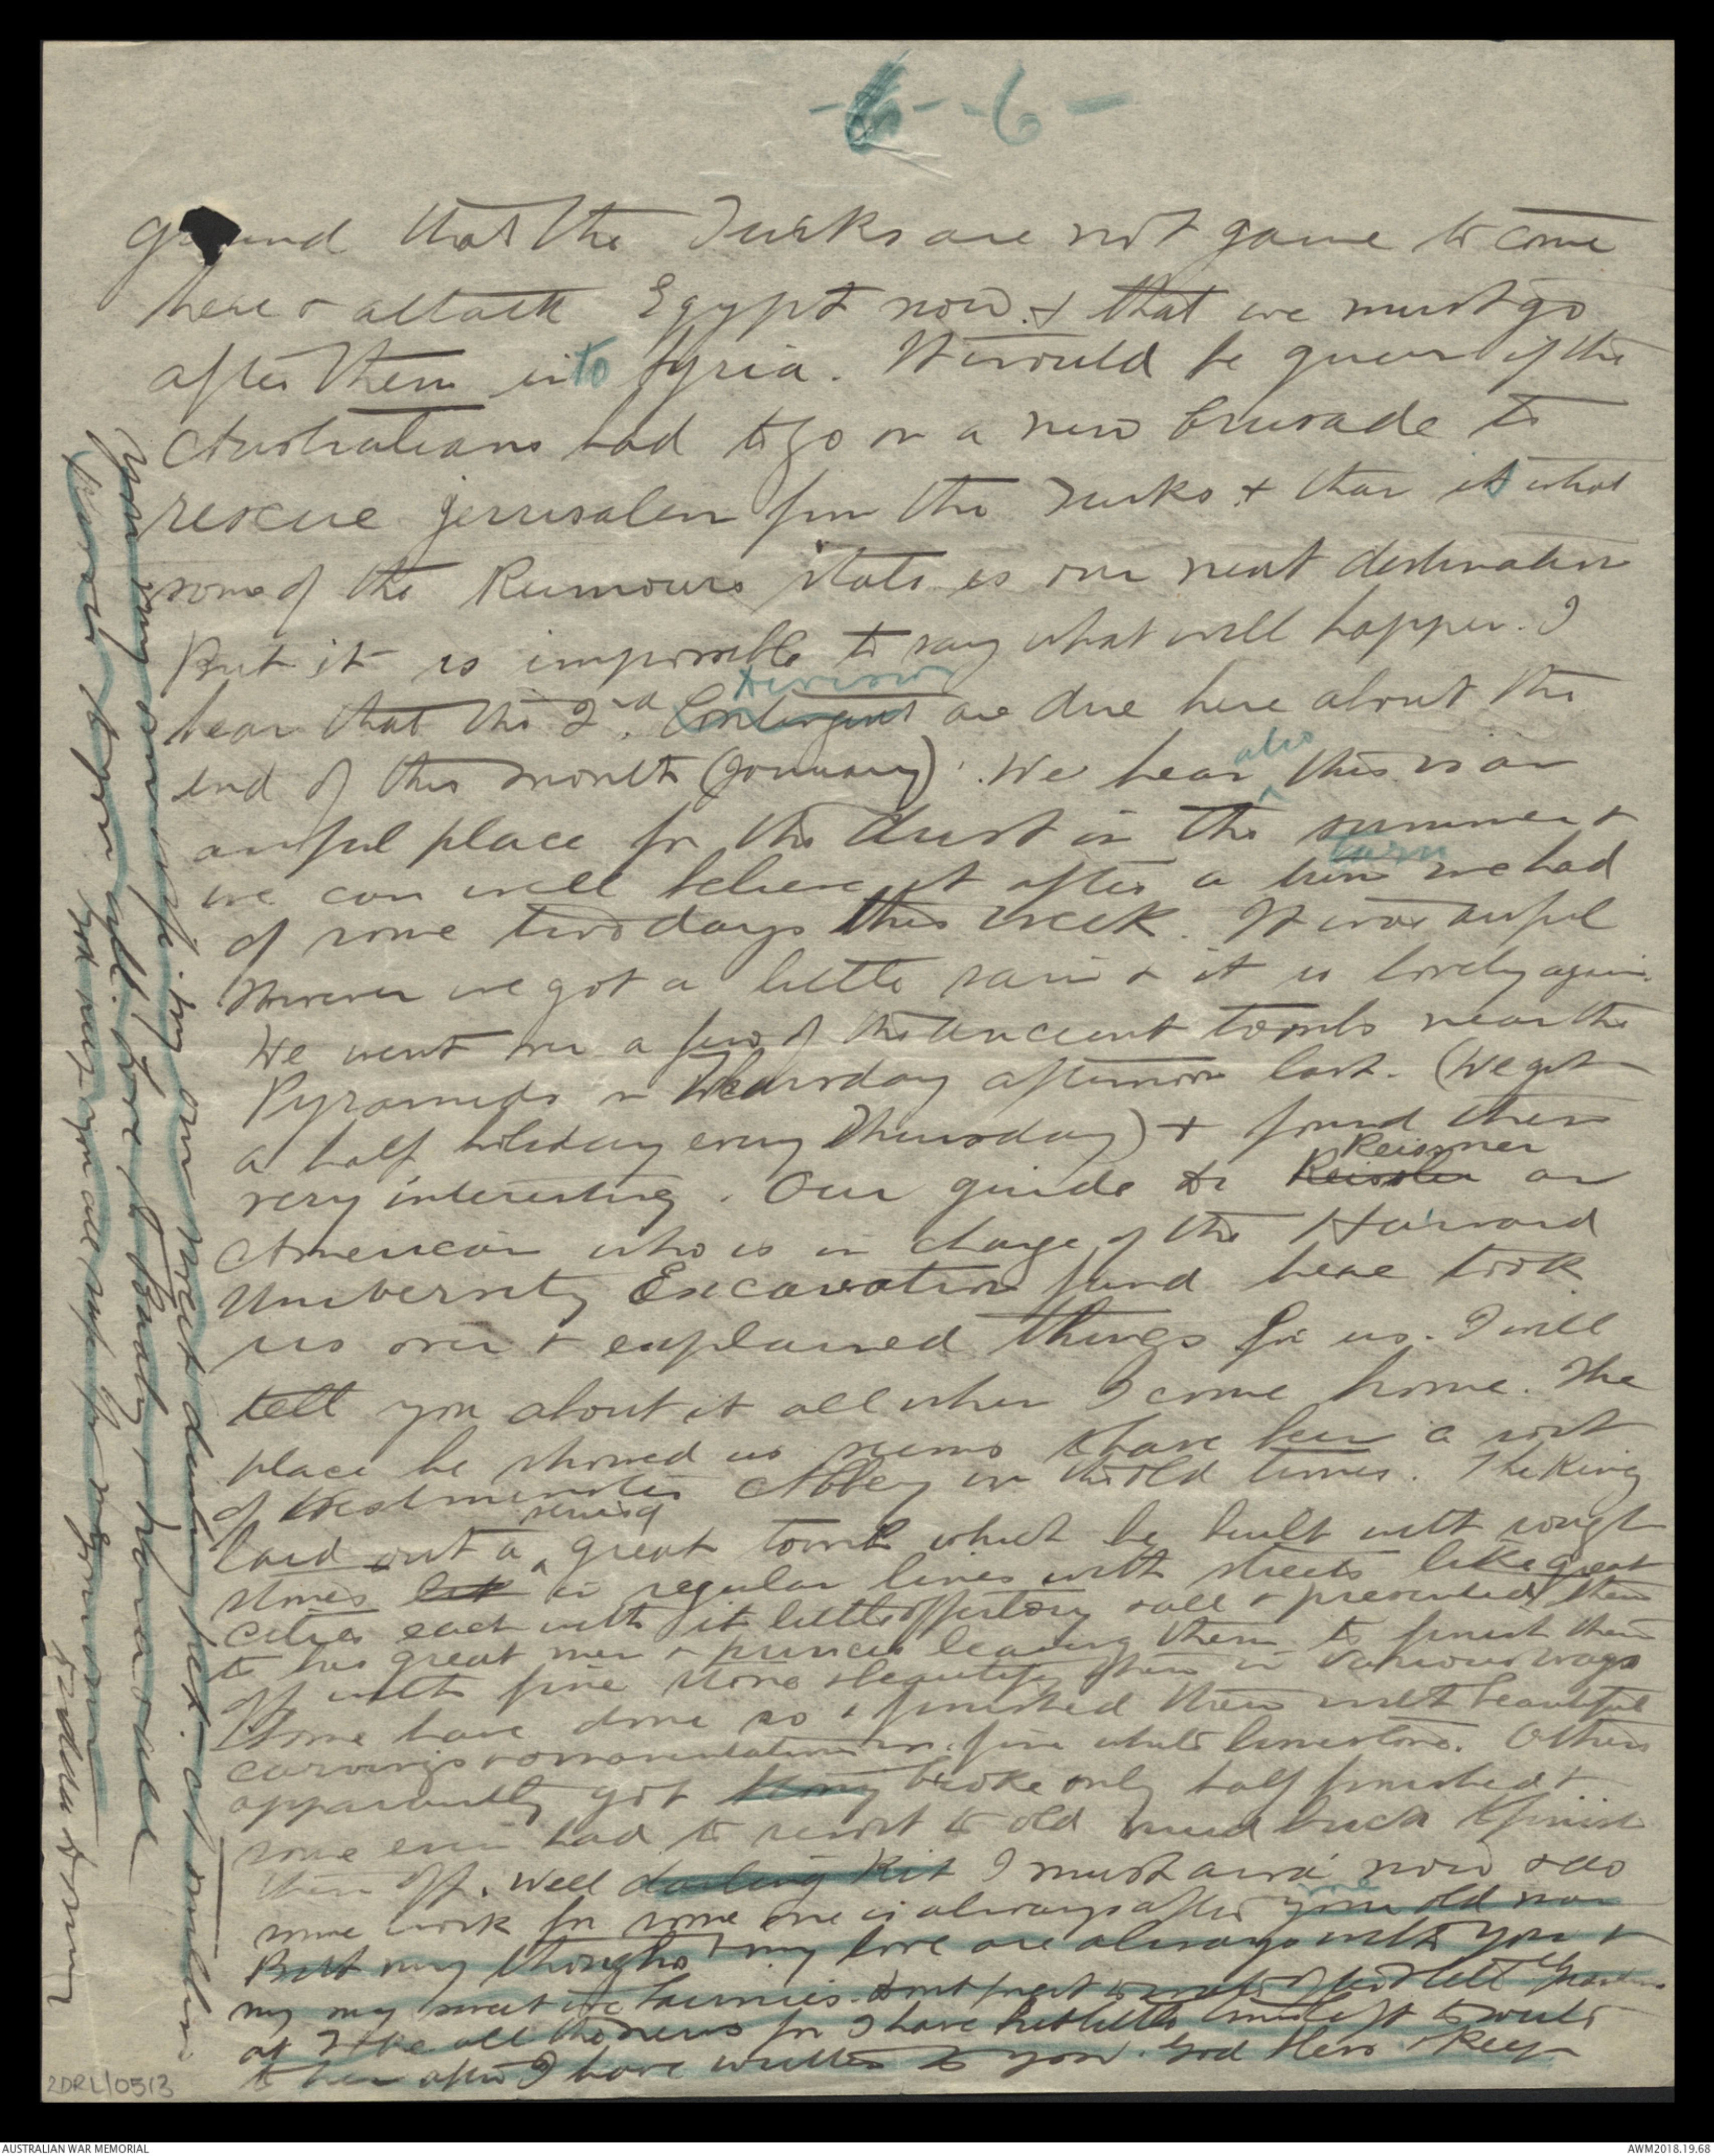 -6- -6-
ground that the Turks are not game to come
here & attack Egypt now. & that we must go
after them into Syria. It would be queer if the
Australians had to go on a new Crusade to
rescue Jerusalem from the Turks & that is what
some of the Rumours state is our next destination
But it is impossible to say what will happen. I
Division
hear that the 2nd. Contingent are due here about the
also
end of this month (January). We hear this is an
awful place for the dust in the summer &
turn
we can well believe it after a turn we had
of some two days this week. It was awful
However we got a little rain & it is lovely again.
We went over a few of the ancient tombs near the
Pyramids on Thursday afternoon last. (We get
a half holiday every Thursday) & found them
Reissner
very interesting. Our guide Dr an
American who is in charge of the Harvard
University Excavation fund here took
us over & explained things for us. I will
tell you about it all when I come home. The
place he showed us seems to have been a sort
of Westminster Abbey in the old times. The King
laid out a great tomb which he built with rough
stones in regular lines with streets like great
cities each with it little offertory & all & presented them
to his great men & princes leaving them to finish them
off with fine stone & beautify them in various ways
Some have done so & finished them with beautiful
carvings & ornamentation in fine white limestone. Others
apparently got broke only half finished &
some even had to resort to old mud brick to finish
them off. Well darling Kit I must away now & do
some work for some one is always after your old man
me
But my thoughts & my love are always with you &
my my sweet wee lammies. Dont forget to
at all the news for I have but little time left to write
to her after I have written to you. God bless & keep
you my own wife, my own sweet darling pet. A
upon you all. Love to & all
God keep you all safe for
2DRL/0513
AUSTRALIAN WAR MEMORIAL
AWM2018.19.68